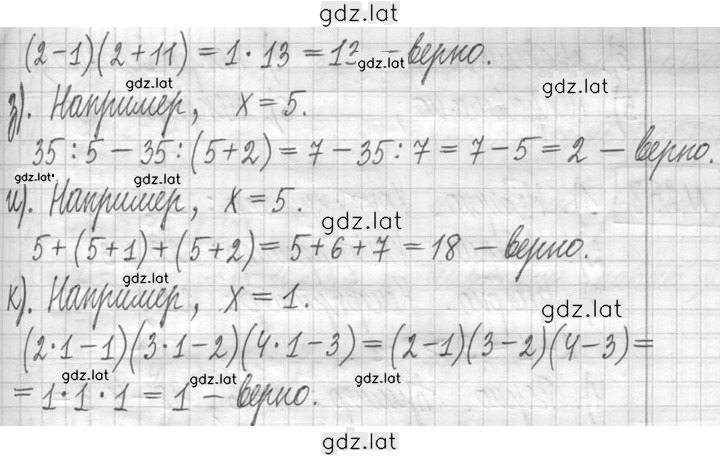 gdz.lat
(2-1)(2+11) = 1·13 = 13 – верно.
gdz.lat
gdz.lat
gdz.lat
з). Например, x = 5.
35 : 5 – 35 : (5+2) = 7 – 35 : 7 = 7 – 5 = 2 – верно.
gdz.lat
gdz.lat
и). Например, x = 5.
gdz.lat
5 + (5+1) + (5+2) = 5 + 6 + 7 = 18 – верно.
gdz.lat
к). Например, x = 1.
gdz.lat
(2·1 – 1)(3·1 – 2)(4·1 – 3) = (2-1)(3-2)(4-3) =
gdz.lat
gdz.lat
gdz.lat
= 1·1·1 = 1 – верно.
gdz.lat